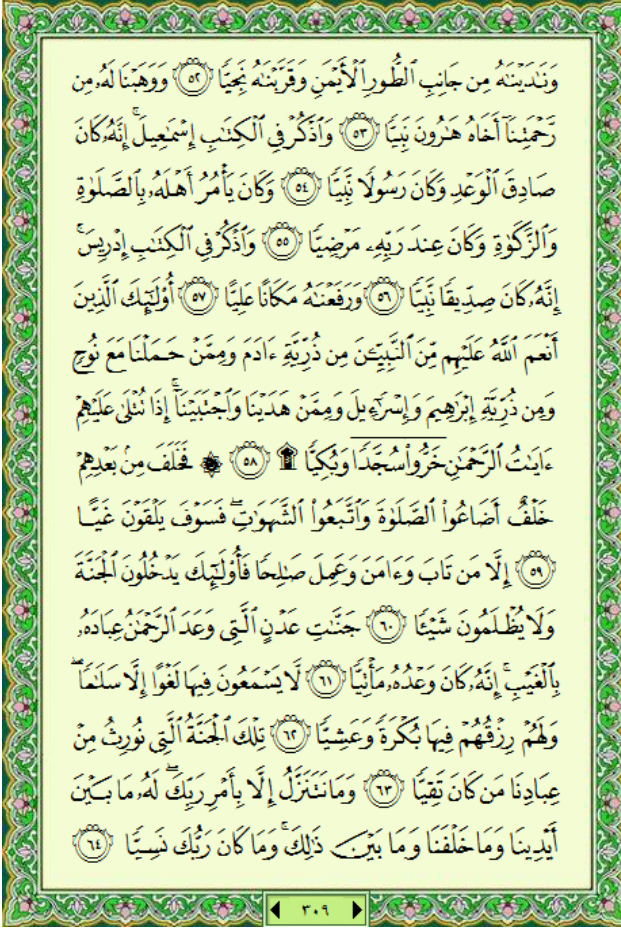 وَنَٰدَيۡنَٰهُ مِن جَانِبِ ٱلطُّورِ ٱلۡأَيۡمَنِ وَقَرَّبۡنَٰهُ نَجِيّٗا ٥٢ وَوَهَبۡنَا لَهُۥ مِن
رَّحۡمَتِنَآ أَخَاهُ هَٰرُونَ نَبِيّٗا ٥٣ وَٱذۡكُرۡ فِي ٱلۡكِتَٰبِ إِسۡمَٰعِيلَۚ إِنَّهُۥ كَانَ
صَادِقَ ٱلۡوَعۡدِ وَكَانَ رَسُولٗا نَّبِيّٗا ٥٤ وَكَانَ يَأۡمُرُ أَهۡلَهُۥ بِٱلصَّلَوٰةِ
وَٱلزَّكَوٰةِ وَكَانَ عِندَ رَبِّهِۦ مَرۡضِيّٗا ٥٥ وَٱذۡكُرۡ فِي ٱلۡكِتَٰبِ إِدۡرِيسَۚ
إِنَّهُۥ كَانَ صِدِّيقٗا نَّبِيّٗا ٥٦ وَرَفَعۡنَٰهُ مَكَانًا عَلِيًّا ٥٧ أُوْلَٰٓئِكَ ٱلَّذِينَ
أَنۡعَمَ ٱللَّهُ عَلَيۡهِم مِّنَ ٱلنَّبِيِّـۧنَ مِن ذُرِّيَّةِ ءَادَمَ وَمِمَّنۡ حَمَلۡنَا مَعَ نُوحٖ
وَمِن ذُرِّيَّةِ إِبۡرَٰهِيمَ وَإِسۡرَٰٓءِيلَ وَمِمَّنۡ هَدَيۡنَا وَٱجۡتَبَيۡنَآۚ إِذَا تُتۡلَىٰ عَلَيۡهِمۡ
ءَايَٰتُ ٱلرَّحۡمَٰنِ خَرُّواْ سُجَّدٗا وَبُكِيّٗا ۩ ٥٨ ۞ فَخَلَفَ مِنۢ بَعۡدِهِمۡ
خَلۡفٌ أَضَاعُواْ ٱلصَّلَوٰةَ وَٱتَّبَعُواْ ٱلشَّهَوَٰتِۖ فَسَوۡفَ يَلۡقَوۡنَ غَيًّا
٥٩ إِلَّا مَن تَابَ وَءَامَنَ وَعَمِلَ صَٰلِحٗا فَأُوْلَٰٓئِكَ يَدۡخُلُونَ ٱلۡجَنَّةَ
وَلَا يُظۡلَمُونَ شَيۡـٔٗا ٦٠ جَنَّٰتِ عَدۡنٍ ٱلَّتِي وَعَدَ ٱلرَّحۡمَٰنُ عِبَادَهُۥ
بِٱلۡغَيۡبِۚ إِنَّهُۥ كَانَ وَعۡدُهُۥ مَأۡتِيّٗا ٦١ لَّا يَسۡمَعُونَ فِيهَا لَغۡوًا إِلَّا سَلَٰمٗاۖ
وَلَهُمۡ رِزۡقُهُمۡ فِيهَا بُكۡرَةٗ وَعَشِيّٗا ٦٢ تِلۡكَ ٱلۡجَنَّةُ ٱلَّتِي نُورِثُ مِنۡ
عِبَادِنَا مَن كَانَ تَقِيّٗا ٦٣ وَمَا نَتَنَزَّلُ إِلَّا بِأَمۡرِ رَبِّكَۖ لَهُۥ مَا بَيۡنَ
أَيۡدِينَا وَمَا خَلۡفَنَا وَمَا بَيۡنَ ذَٰلِكَۚ وَمَا كَانَ رَبُّكَ نَسِيّٗا ٦٤
٣٠٩